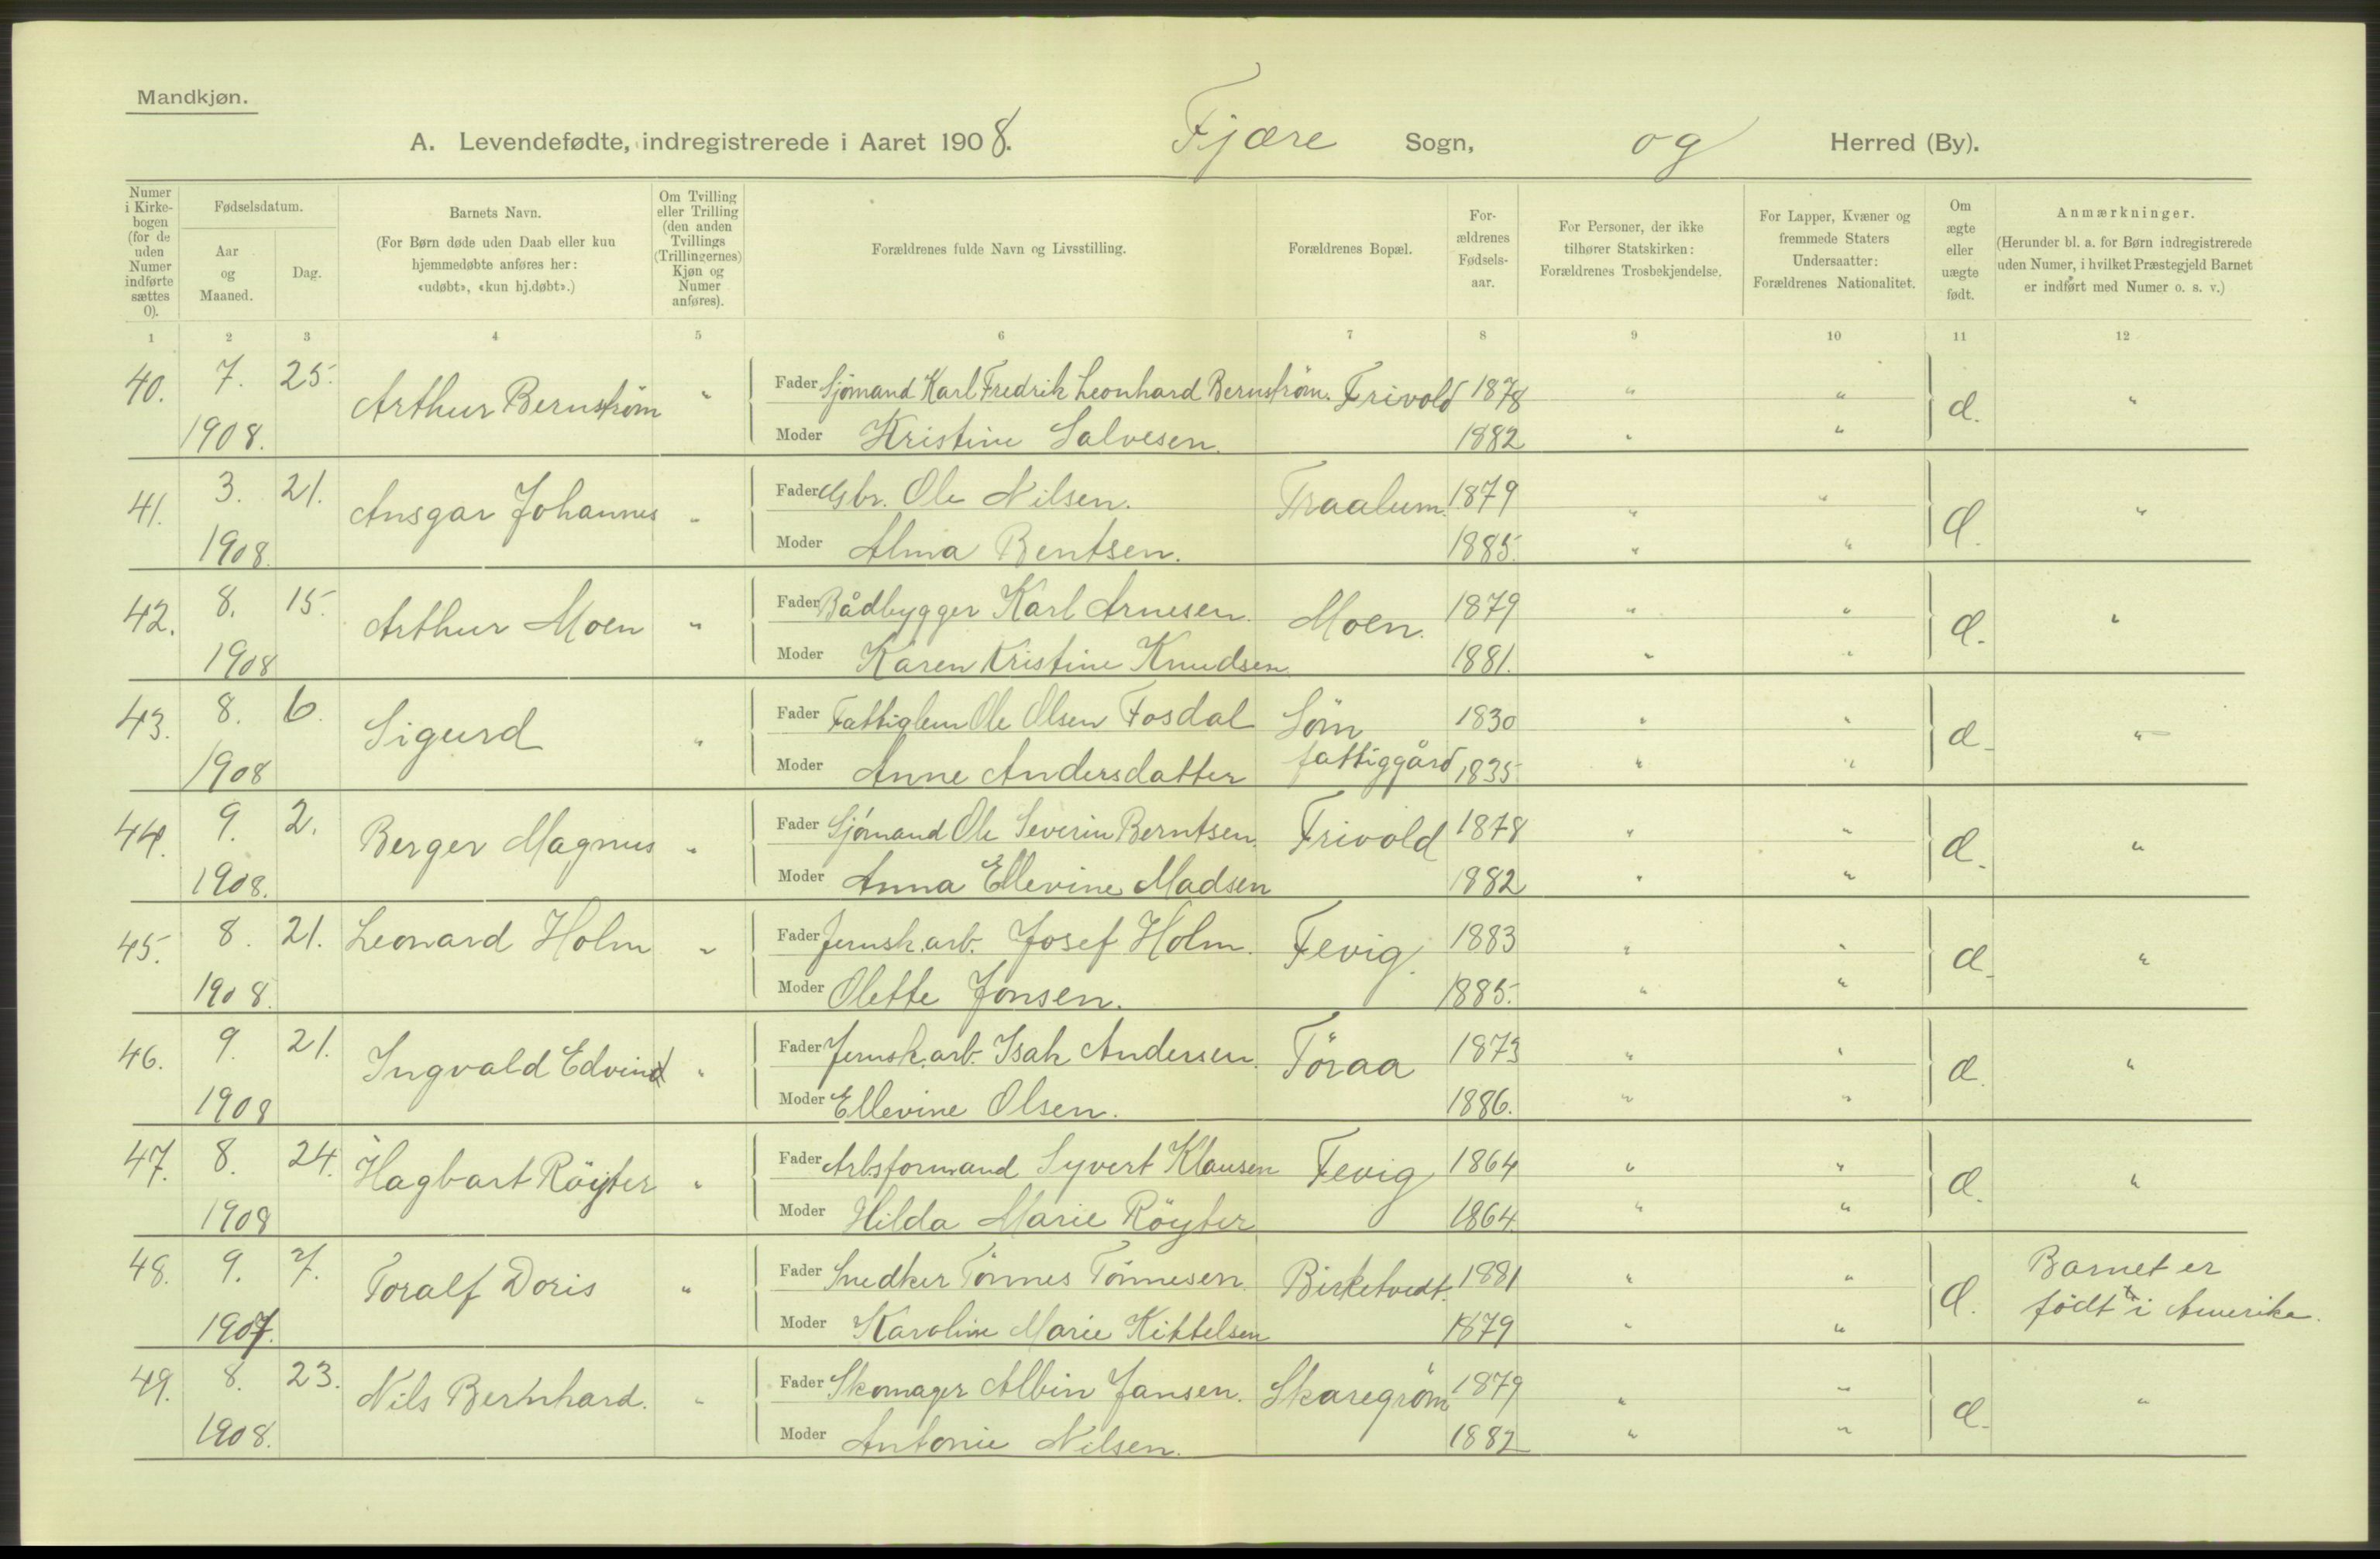 Mandkjøn.
A. Levendefødte, indregistrerede i Aaret 1908. Fjære Sogn, og Herred (By).
Numer i Kirkebogen (for de uden Numer indførte sættes 0).
Fødselsdatum.
Aar og Maaned.
Dag.
Barnets Navn.
(For Børn døde uden Daab eller kun hjemmedøbte anføres her: «udøbt», «kun hj.døbt».)
Om Tvilling eller Trilling (den anden Tvillings (Trillingernes) Kjøn og Numer anføres).
Forældrenes fulde Navn og Livsstilling.
Forældrenes Bopæl.
For-
ældrenes
Fødsels-
aar.
For Personer, der ikke tilhører Statskirken: Forældrenes Trosbekjendelse.
For Lapper, Kvæner og fremmede Staters Undersaatter: Forældrenes Nationalitet.
Om ægte eller uægte født.
Anmærkninger.
(Herunder bl. a. for Børn indregistrerede uden Numer, i hvilket Præstegjeld Barnet er indført med Numer o. s. v.)
1 2 3 4 5 6 7 8 9 10 11 12
40. 7. 25. Arthur Bernström " Fader Sjømand Karl Fredrik Leonhard Bernström. Frivold 1878 " " æ. "
1908. Moder Kristine Salvesen. 1882 " "
41. 3. 21. Ansgar Johannes " Fader Gbr. Ole Nilsen. Traalum. 1879 " " æ. "
1908. Moder Alma Bentsen. 1885. " "
42. 8. 15. Arthur Moen " Fader Bådbygger Karl Arnesen. Moen. 1879 " " æ. "
1908 Moder Karen Kristine Knudsen 1881. " "
43. 8. 6. Sigurd " Fader Fattiglem Ole Olsen Fosdal Söm 1830 " " æ. "
1908 Moder Anne Andersdatter fattiggård 1835. " "
44. 9. 2. Berger Magnus " Fader Sjömand Ole Severin Berntsen. Frivold 1878 " " æ. "
1908. Moder Anna Ellevine Madsen 1882 " "
45. 8. 21. Leonard Holm " Fader Jernsk.arb. Josef Holm. Fevig. 1883 " " æ. "
1908. Moder Olette Jonsen. 1885. " "
46. 9. 21. Ingvald Edvind " Fader Jernsk.arb. Isak Andersen. Töraa 1873 " " æ. "
1908 Moder Ellevine Olsen. 1886. " "
47. 8. 24. Hagbart Röyter " Fader Arbsformand Syvert Klausen Fevig 1864 " " æ. "
1908 Moder Hilda Marie Röyter 1864. " "
48. 9. 7. Toralf Doris " Fader Snedker Tönnes Tönnesen. Birketvedt. 1881 " " æ. Barnet er
1907. Moder Karoline Marie Kittelsen 1879 " " født i Amerika.
49. 8. 23. Nils Bernhard. " Fader Skomager Albin Jansen. Skaregröm 1879 " " æ. "
1908. Moder Antonie Nilsen. 1882 " "